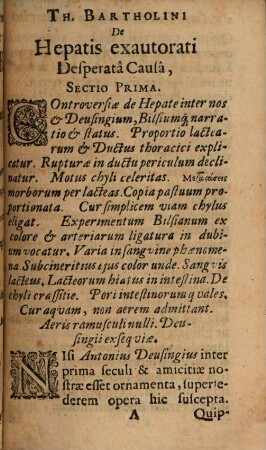 TH. BARTHOLINI
De
Hepatis exautorati
Desperatâ Causâ,
SECTIO PRIMA.
COntroversiæ de Hepate inter nos
& Deusingium, Bilsiumq; narra-
tio & status. Proportio lactea-
rum & Ductus thoracici expli-
catur. Rupturæ in ductu periculum decli-
natur. Motus chyli celeritas.
morborum per lacteas. Copia pastuum pro-
portionata. Cur simplicem viam chylus
eligat. Experimentum Bilsianum ex
colore & arteriarum ligatura in dubi-
um vocatur. Varia in sangvine phænome-
na. Subcineritius ejus color unde. Sangvis
lacteus, Lacteorum hiatus in intestina. De
chyli crassitie. Pori intestinorum qvales.
Cur aqvam, non aerem admittant.
Aeris ramusculi nulli. Deu-
singii exseqviæ.
NIsi Antonius Deusingius inter
prima seculi & amicitiæ no-
stræ esset ornamenta, superse-
derem opera hic suscepta.
A Quip-